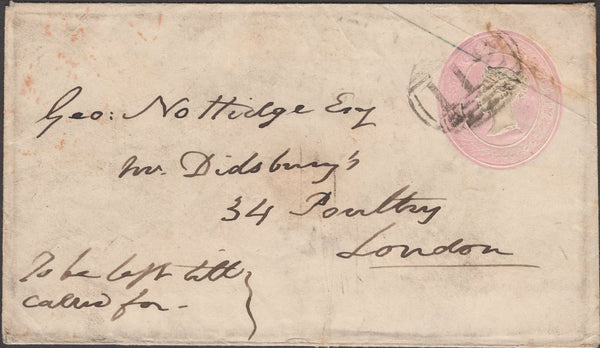 Geo: Nottidge Esq
Mr. Didsbury's
34 Poultry
London
To be left till
called for -